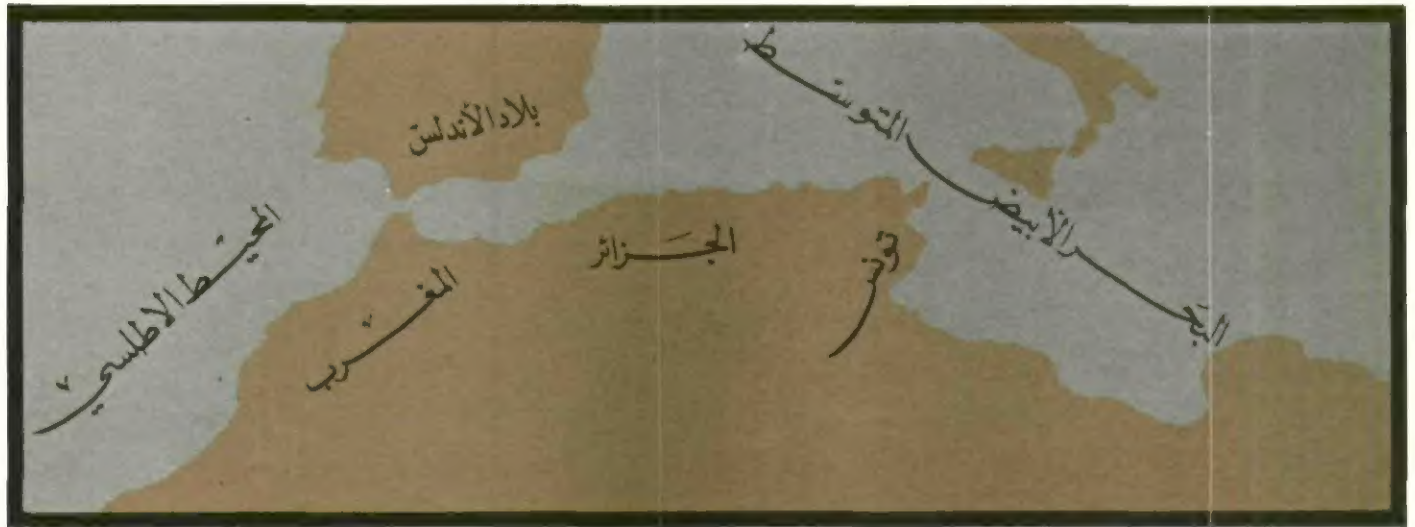 البحر الأبيض المتوسط
بلاد الأندلس
المحيط الاطلسي
المغرب
الجزائر
تونس